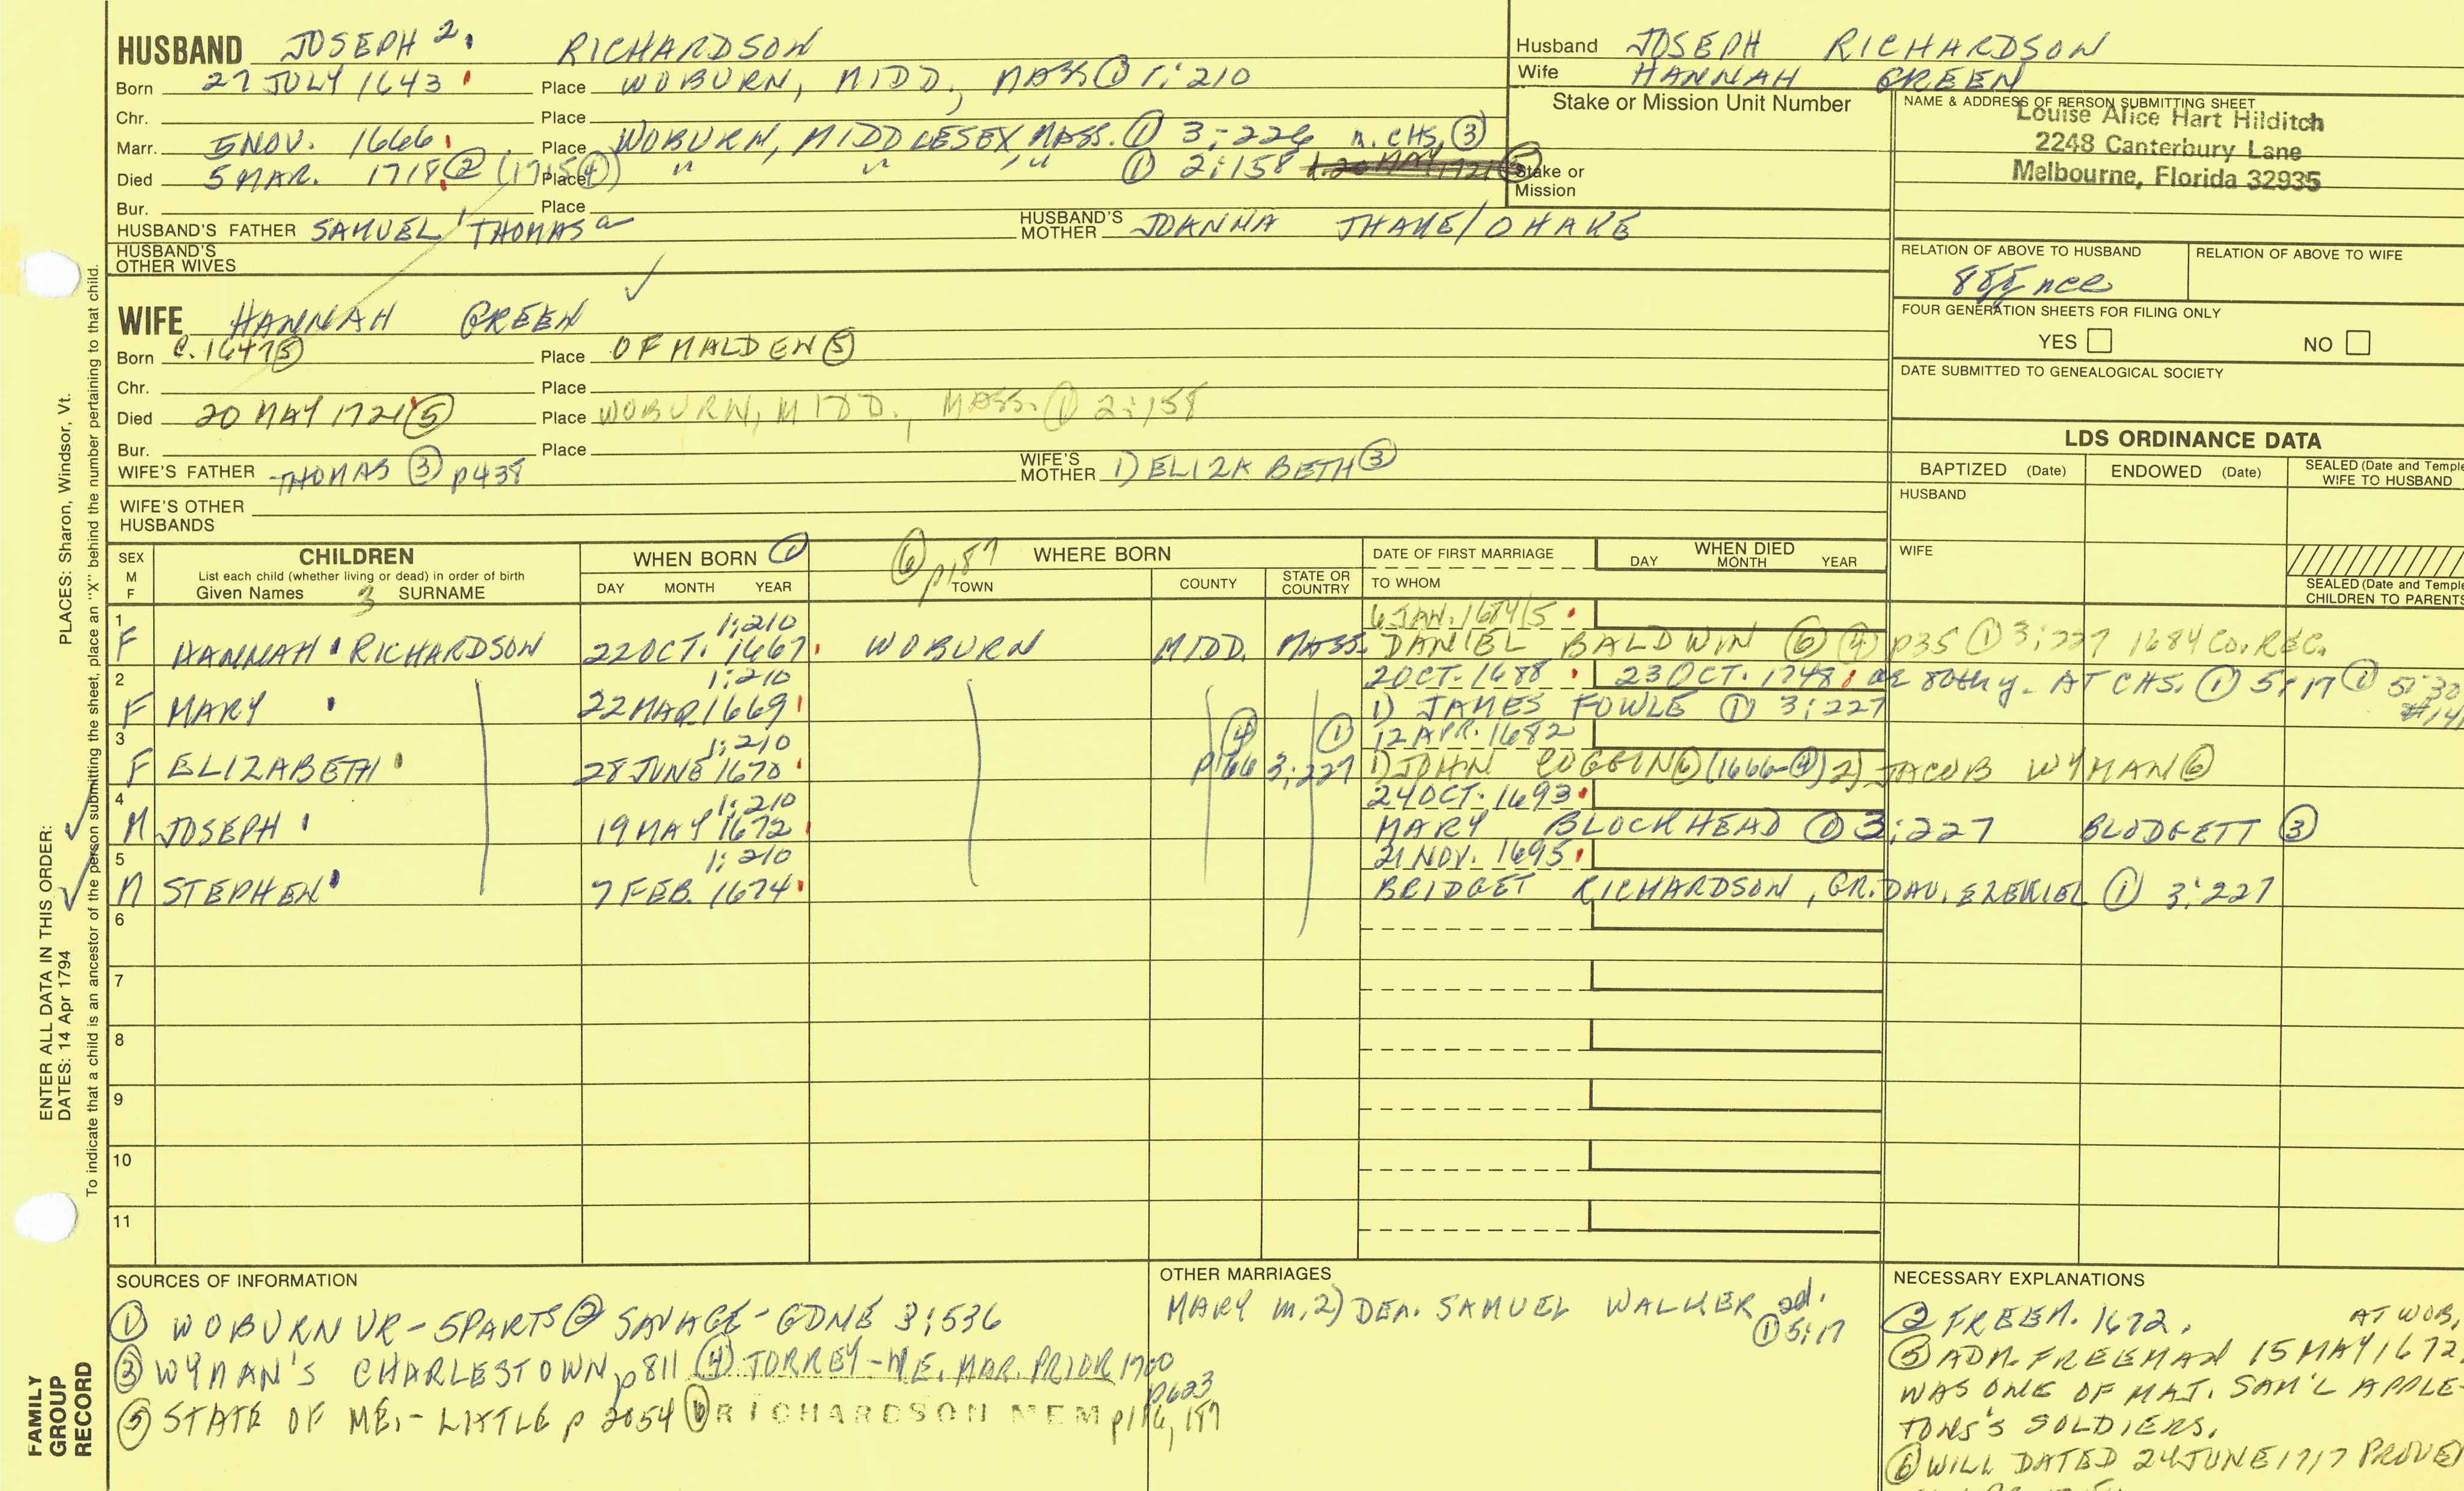 HUSBAND JOSEPH 2. RICHARDSON
Born 27 JULY 1643 Place WOBURN, MIDD., MASS. ① 1:210
Chr. Place
Marr. 5 NOV. 1666 Place WOBURN, MIDDLESEX, MASS. ① 3:226 m. CHS. ③
Died 5 MAR. 1718 ② (1715 ④) Place " " " ① 2:158
Bur. Place
HUSBAND'S FATHER SAMUEL 1 THOMAS a HUSBAND'S MOTHER JOANNA THAKE/OHAKE
HUSBAND'S OTHER WIVES
WIFE HANNAH GREEN
Born c. 1647 ⑤ Place OF MALDEN ⑤
Chr. Place
Died 20 MAY 1721 ⑤ Place WOBURN, MIDD., MASS. ① 2:158
Bur. Place
WIFE'S FATHER THOMAS ③ p438 WIFE'S MOTHER 1) ELIZABETH ③
WIFE'S OTHER HUSBANDS
Husband JOSEPH RICHARDSON
Wife HANNAH GREEN
Stake or Mission Unit Number
Stake or Mission
NAME & ADDRESS OF PERSON SUBMITTING SHEET
Louise Alice Hart Hilditch
2248 Canterbury Lane
Melbourne, Florida 32935
RELATION OF ABOVE TO HUSBAND RELATION OF ABOVE TO WIFE
FOUR GENERATION SHEETS FOR FILING ONLY
YES NO
DATE SUBMITTED TO GENEALOGICAL SOCIETY
LDS ORDINANCE DATA
BAPTIZED (Date) ENDOWED (Date) SEALED (Date and Temple WIFE TO HUSBAND
HUSBAND
WIFE
SEALED (Date and Temple CHILDREN TO PARENTS
SEX M F CHILDREN WHEN BORN ① ⑥ p187 WHERE BORN DATE OF FIRST MARRIAGE WHEN DIED
List each child (whether living or dead) in order of birth
Given Names 3 SURNAME DAY MONTH YEAR TOWN COUNTY STATE OR COUNTRY TO WHOM DAY MONTH YEAR
1 1:210 6 JAN. 1684/5
F HANNAH RICHARDSON 22 OCT. 1667 WOBURN MIDD. MASS. DANIEL BALDWIN ⑥ ④ p35 ① 3:227 1684 CO. REC.
2 1:210 2 OCT. 1688 23 OCT. 1748 ae 80th y. AT CHS. ① 5:17
F MARY 22 MAR 1669 1) JAMES FOWLE ① 3:227
3 1:210 ④ ① 12 APR. 1682
F ELIZABETH 28 JUNE 1670 p166 3:227 1) JOHN COGGIN ⑥ (1666-④) 2) JACOB WYMAN ⑥
4 1:210 24 OCT. 1693
M JOSEPH 19 MAY 1672 MARY BLOCKHEAD ① 3:227 BLODGETT ③
5 1:210 21 NOV. 1695
M STEPHEN 7 FEB. 1674 BRIDGET RICHARDSON, GR. DAU. EZEKIEL ① 3:227
6
7
8
9
10
11
SOURCES OF INFORMATION
① WOBURN VR - 5 PARTS ② SAVAGE - GDNE 3:536
③ WYMAN'S CHARLESTOWN p811 ④ TORREY - N.E. MAR. PRIOR 1700 p623
⑤ STATE OF ME. - LITTLE p 2054 ⑥ RICHARDSON MEM p186, 187
OTHER MARRIAGES
MARY m. 2) DEA. SAMUEL WALKER 2d. ① 5:17
NECESSARY EXPLANATIONS
② FREEM. 1672. AT WOB.
⑤ ADM. FREEMAN 15 MAY 1672.
WAS ONE OF MAJ. SAM'L APPLE-
TONS'S SOLDIERS.
⑥ WILL DATED 24 JUNE 1717 PROVED
ENTER ALL DATA IN THIS ORDER:
PLACES: Sharon, Windsor, Vt.
DATES: 14 Apr 1794
To indicate that a child is an ancestor of the person submitting the sheet, place an "X" behind the number pertaining to that child.
FAMILY
GROUP
RECORD